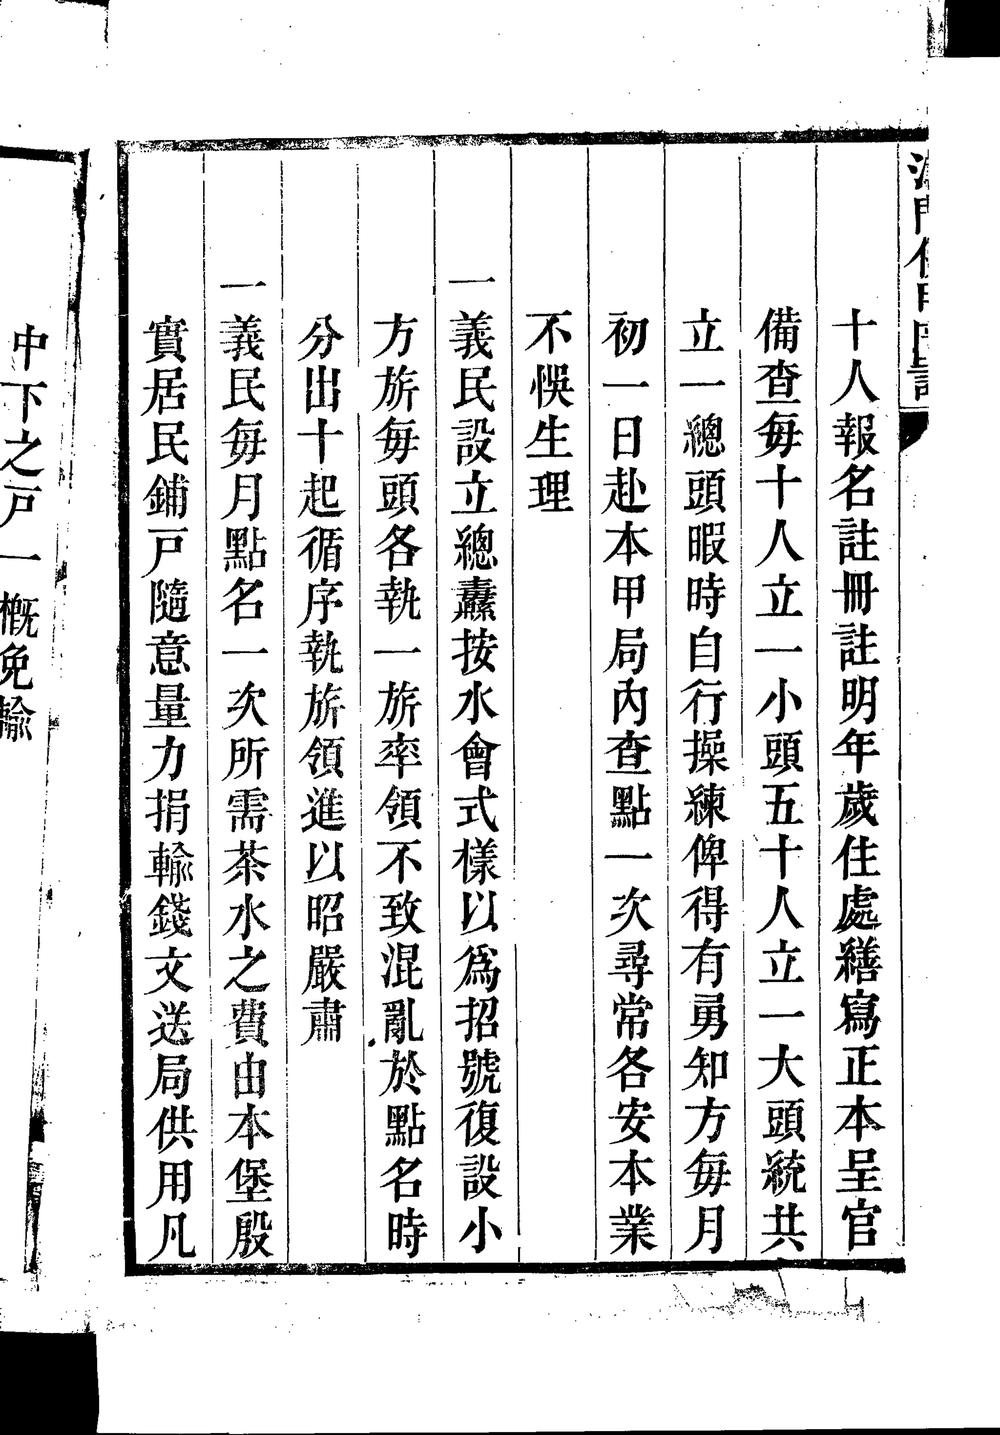 十人報名註冊註明年歲住處繕寫正本呈官
備查每十人立一小頭五十人立一大頭統共
立一總頭暇時自行操練俾得有勇知方每月
初一日赴本甲局內查點一次尋常各安本業
不悞生理
一義民設立總纛按水會式樣以爲招號復設小
方旂每頭各執一旂率領不致混亂於點名時
分出十起循序執旂領進以昭嚴肅
一義民每月點名一次所需茶水之費由本堡殷
實居民鋪戸隨意量力捐輸錢文送局供用凡
中下之戸一概免輸